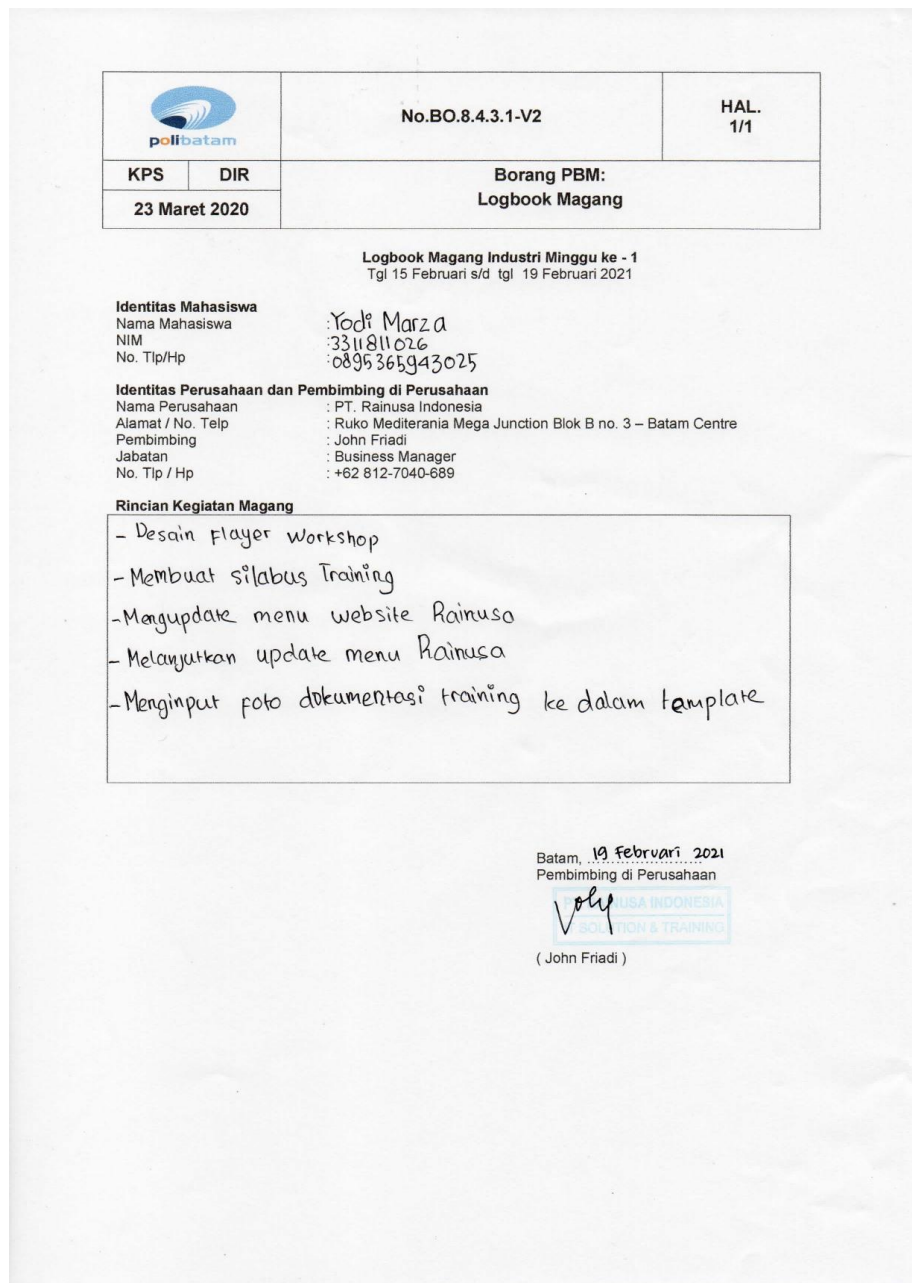 polibatam
No.BO.8.4.3.1-V2
HAL.
1/1
KPS DIR
23 Maret 2020
Borang PBM:
Logbook Magang
Logbook Magang Industri Minggu ke - 1
Tgl 15 Februari s/d tgl 19 Februari 2021
Identitas Mahasiswa
Nama Mahasiswa : Yodi Marza
NIM : 3311811026
No. Tlp/Hp : 0895365943025
Identitas Perusahaan dan Pembimbing di Perusahaan
Nama Perusahaan : PT. Rainusa Indonesia
Alamat / No. Telp : Ruko Mediterania Mega Junction Blok B no. 3 – Batam Centre
Pembimbing : John Friadi
Jabatan : Business Manager
No. Tlp / Hp : +62 812-7040-689
Rincian Kegiatan Magang
- Desain Flayer Workshop
- Membuat silabus Training
- Mengupdate menu website Rainusa
- Melanjutkan update menu Rainusa
- Menginput foto dokumentasi training ke dalam template
Batam, 19 Februari 2021
Pembimbing di Perusahaan
INDONESIA
SOLUTION & TRAINING
( John Friadi )